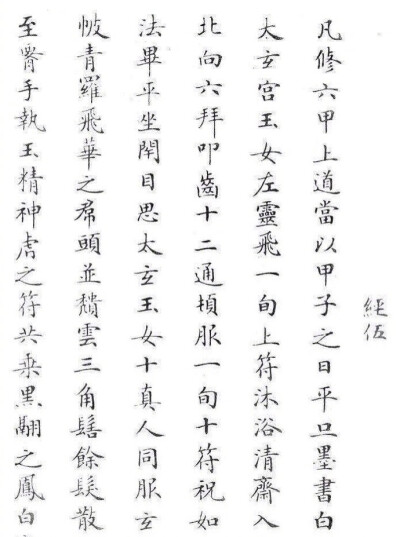 經伍
凡修六甲上道當以甲子之日平旦墨書白
太玄宮玉女左靈飛一旬上符沐浴清齋入
北向六拜叩齒十二通頓服一旬十符祝如
法畢平坐閇目思太玄玉女十真人同服玄
帔青羅飛華之帬頭並頹雲三角髻餘髮散
至腰手執玉精神虎之符共乘黑翮之鳳白